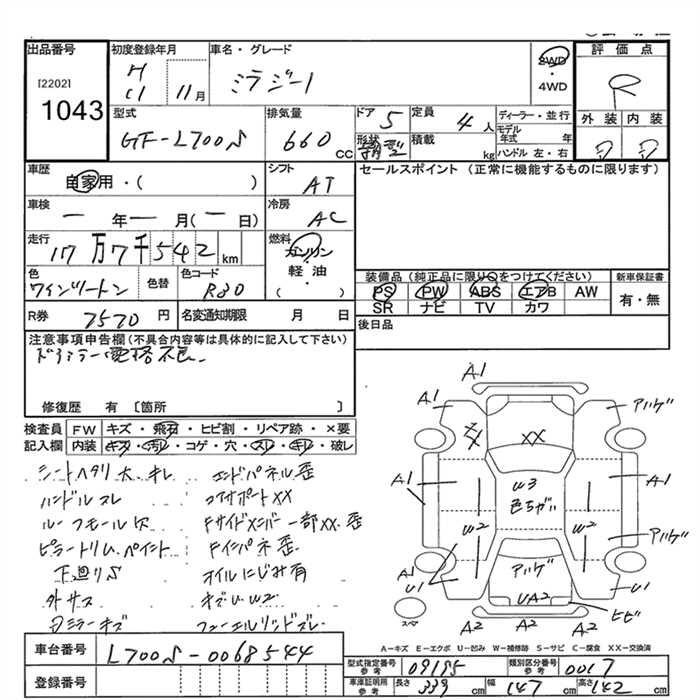 出品番号 初度登録年月 車名・グレード 評価点
[2202] H 11 11月 ミラジーノ 2WD・4WD R
1043
型式 GF-L700S 排気量 660 CC ドア 5 定員 4人 ディーラー・並行 外装 内装
形状 箱型 積載 kg モデル年式 年 ハンドル 左・右 D D
車歴 自家用・( ) シフト AT セールスポイント (正常に機能するものに限ります)
車検 一年一月(一日) 冷房 AC
走行 17万7千542km 燃料 ガソリン・軽油 ( )
色 ワインツートン 色替 色コード R30 装備品 (純正品に限り○をつけてください) 新車保証書
PS PW ABS エアB AW 有・無
SR ナビ TV カワ
R券 7570円 名変通知期限 月 日 後日品
注意事項申告欄 (不具合内容等は具体的に記入して下さい)
ドアミラー電格不良.
修復歴 有 〔箇所 〕
検査員 FW キズ・飛石・ヒビ割・リペア跡・×要
記入欄 内装 キズ・汚れ・コゲ・穴・スレ・キレ・破レ
シートヘタリ大.キレ エンドパネル歪
ハンドルスレ コアサポートXX
ルーフモール欠 Fサイドメンバー一部XX.歪
ピラートリム.ペイント Fインパネ歪.
下廻りS オイルにじみ有
外サス キズU W2
Dミラーキズ フューエルリッドズレ
A1 A1 アトハゲ
XX
A1 W3 A1
色ちがい
W2 W2 アトハゲ
A1 アトハゲ
U1 UA2 U1
スペア A2 A2 A2 ヒビ
A-キズ E-エクボ U-凹み W-補修跡 S-サビ C-腐食 XX-交換済
車台番号 L700S-0068544
型式指定番号 参考 09195 類別区分番号 参考 0017
登録番号 車庫証明用 参考 長さ 339cm 幅 147cm 高さ 142cm